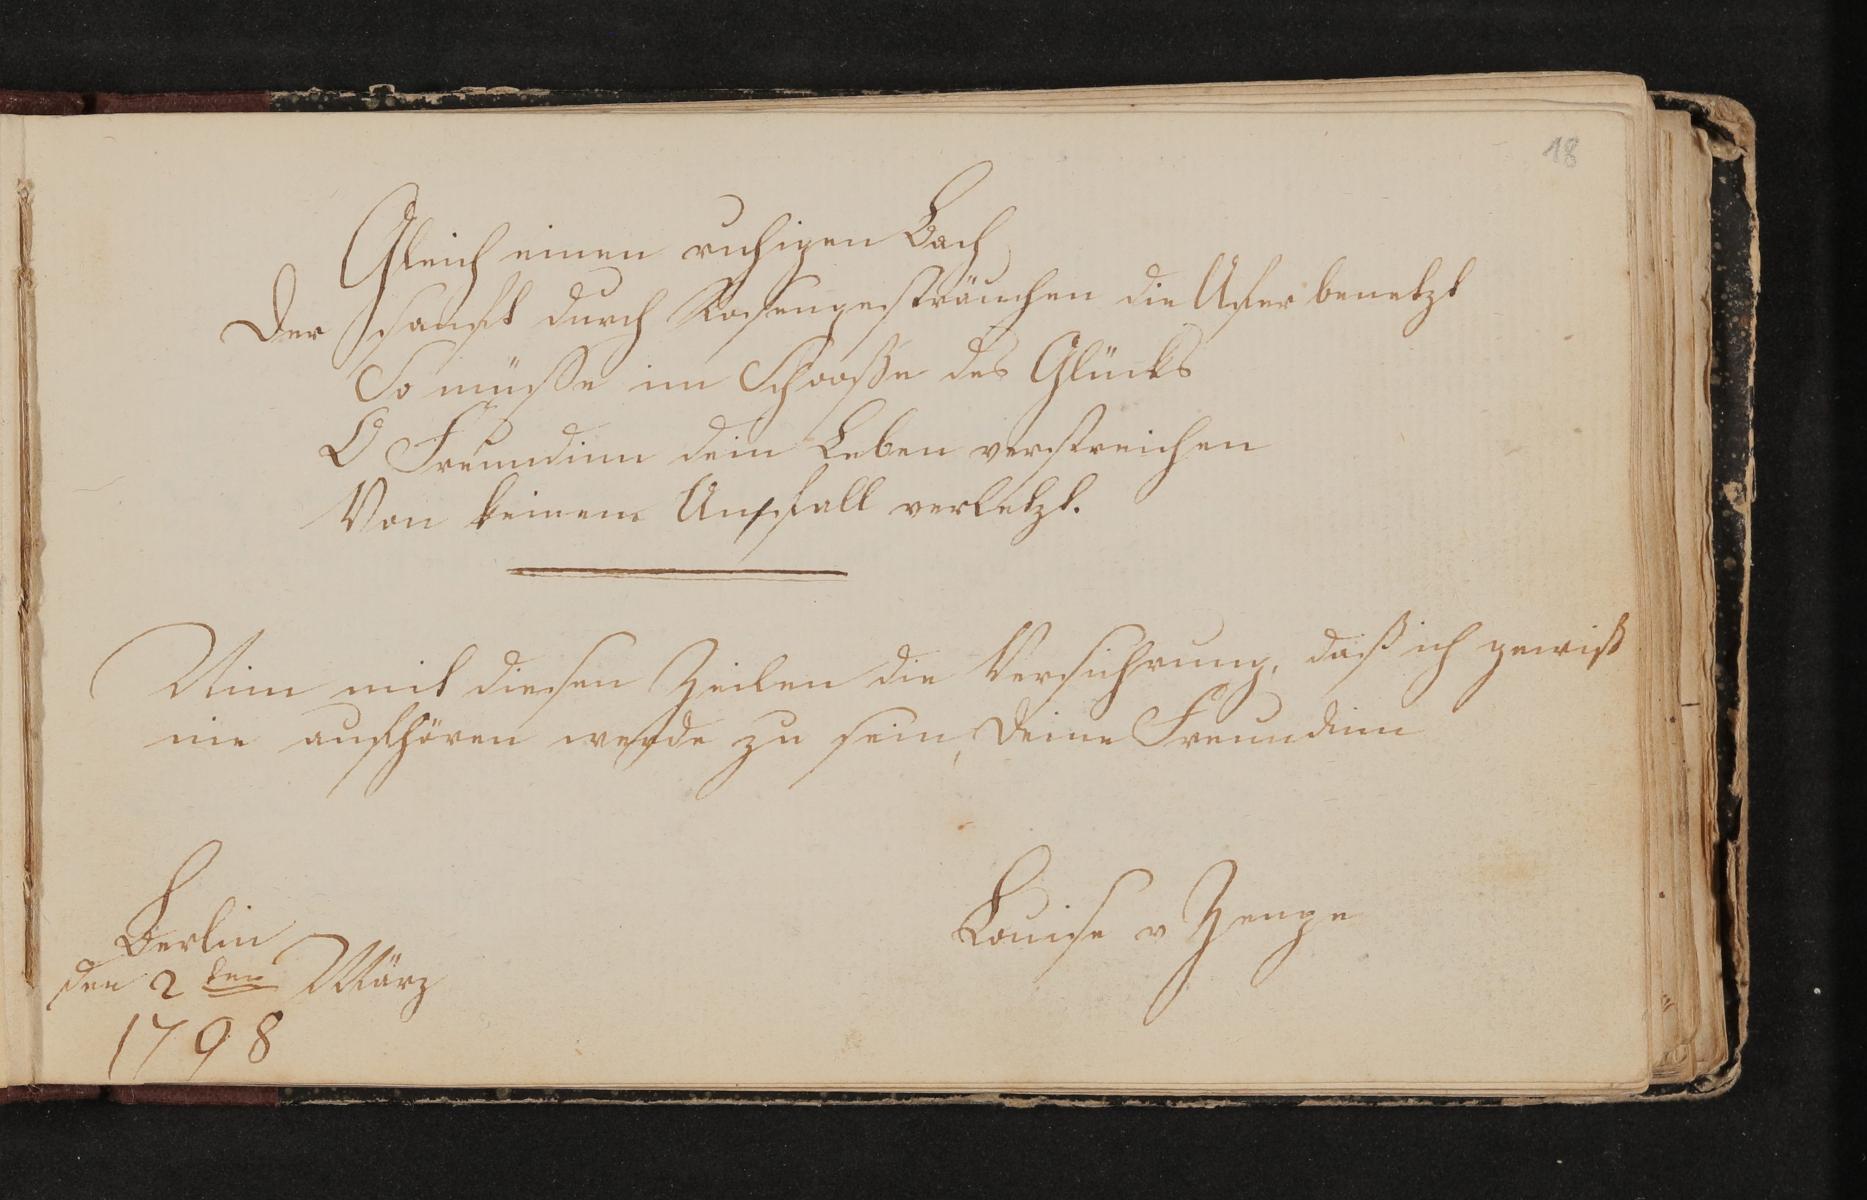 18
Gleich einen ruhigen Bach
Der sanft durch Rosengesträuchen die Ufer benetzt
So müsse im Schooße des Glücks
O Freundinn dein Leben verstreichen
Von keinem Unfall verletzt.
Nim mit diesen Zeilen die Versichrung, daß ich gewiß
nie aufhören werde zu sein, Deine Freundinn
Louise v Zenge
Berlin
den 2 ten März
1798